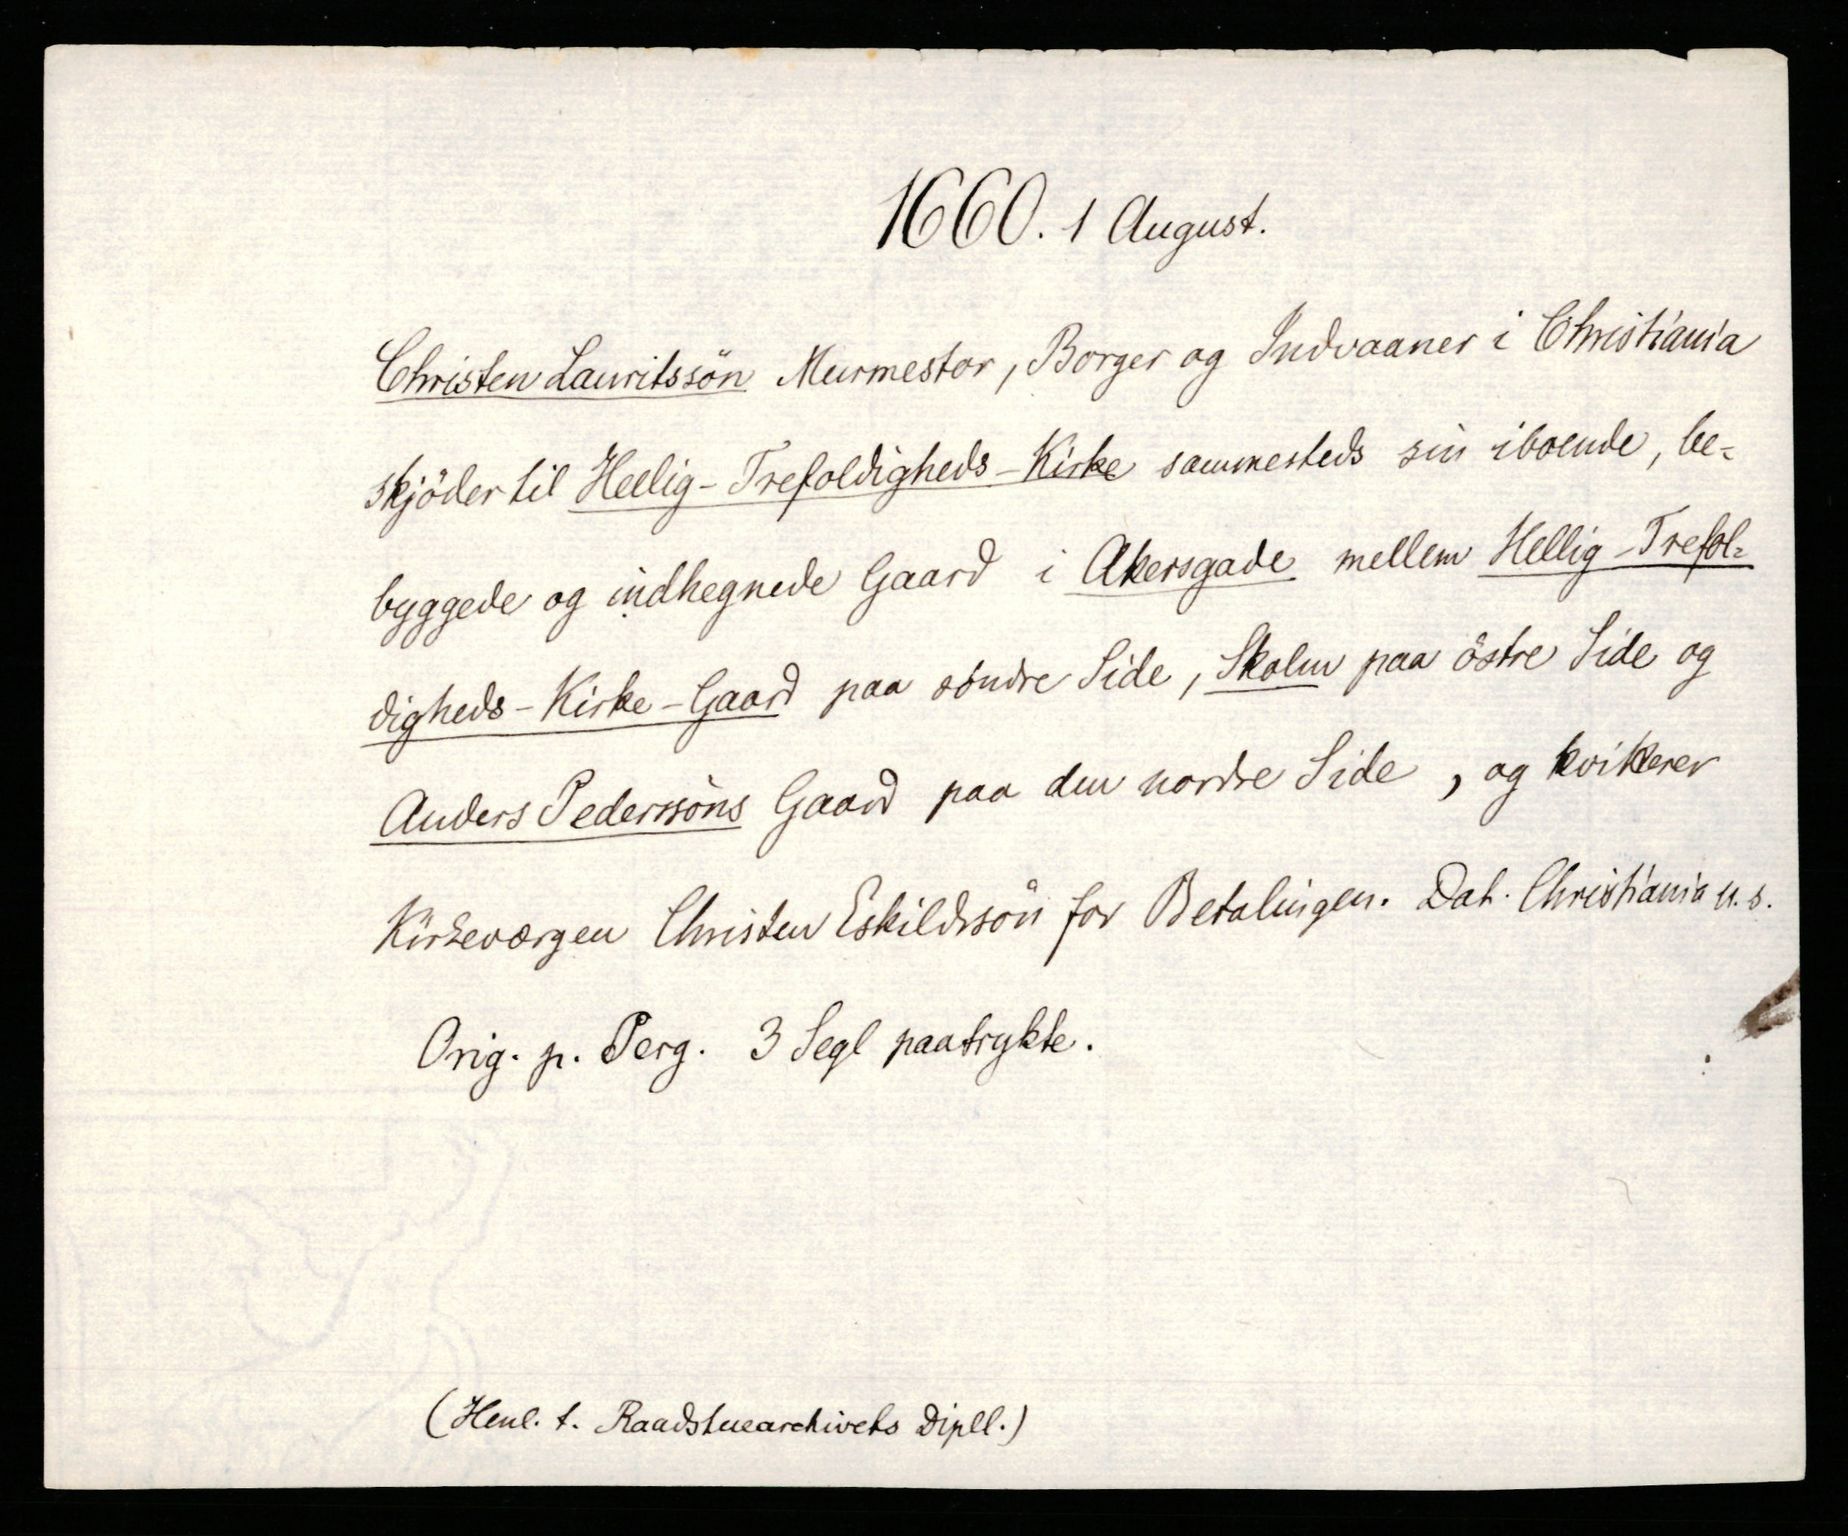 1660. 1 August.
Christen Lauritssön Murmester, Borger og Indvaaner i Christiania
skjöder til Hellig-Trefoldigheds-Kirke sammesteds sin iboende, be-
byggede og indhegnede Gaard i Akersgade mellem Hellig-Trefol-
digheds-Kirke-Gaard paa söndre Side, Skolen paa östre Side og
Anders Pederssöns Gaard paa den nordre Side, og kvitterer
Kirkeværgen Christen Eskildssön for Betalingen. Dat. Christiania u.s.
Orig. p. Perg. 3 Segl paatrykte.
(Henl. t. Raadstuearchivets Dipll.)